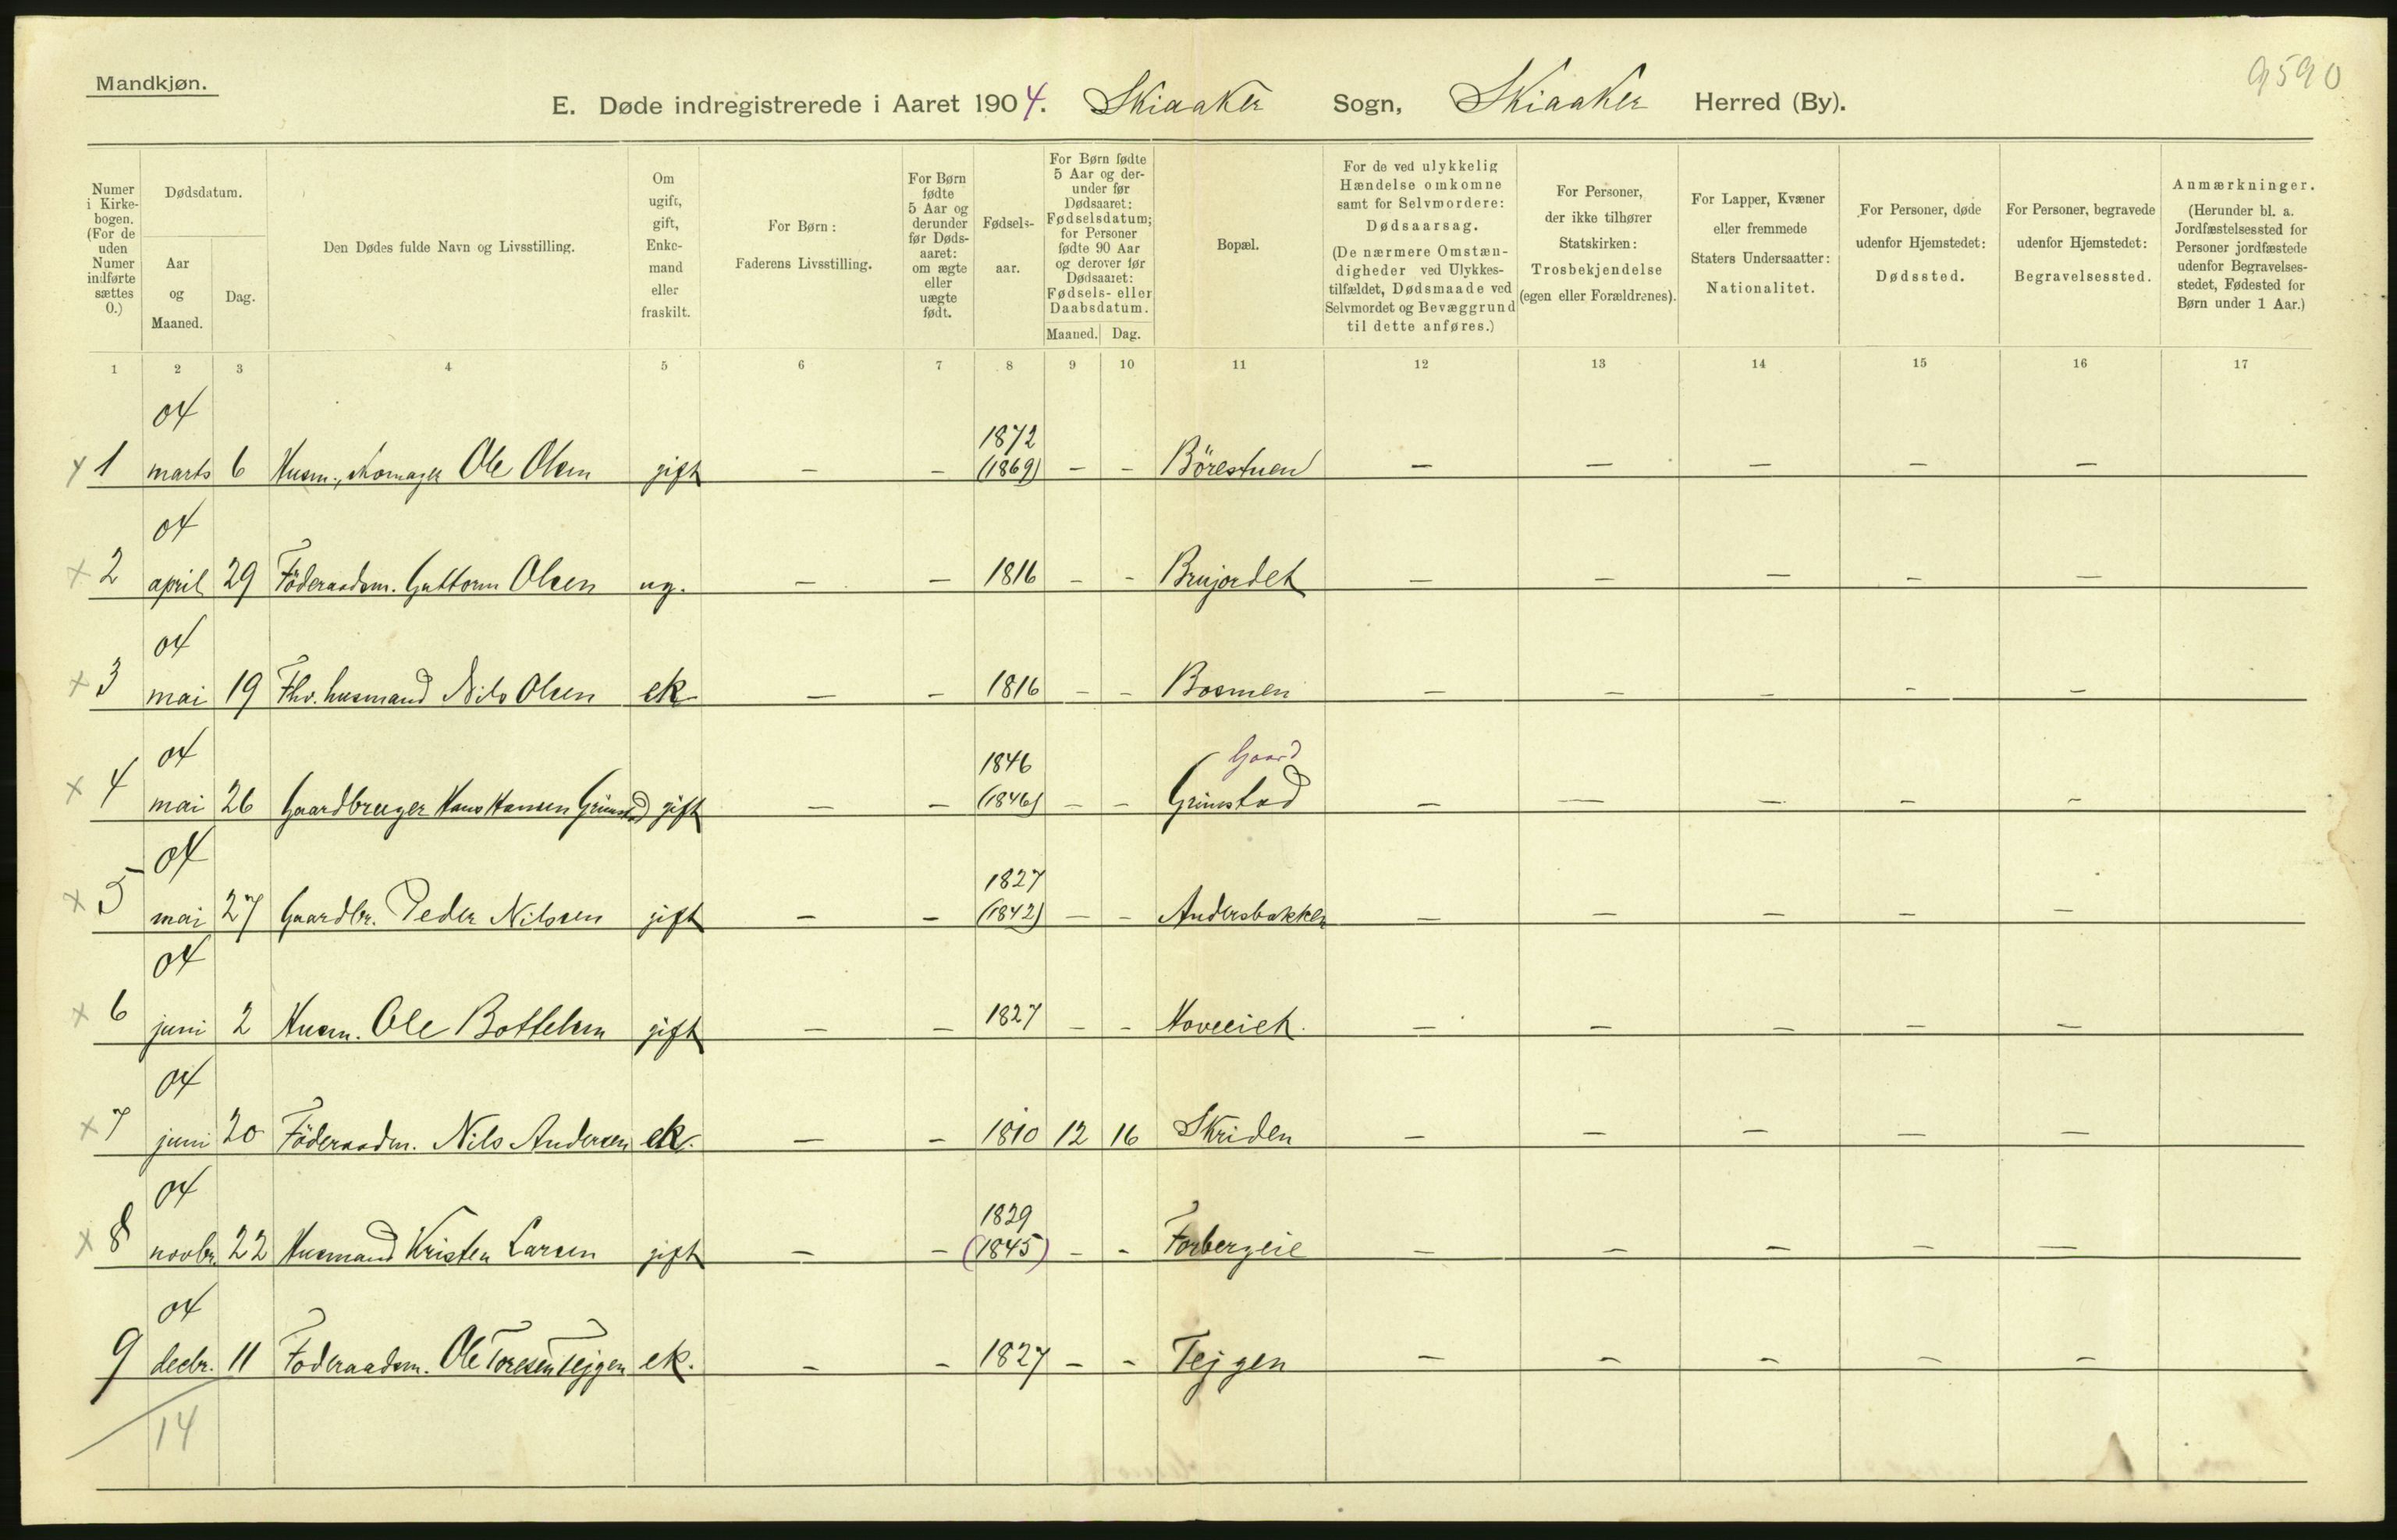 Mandkjøn.
9590
E. Døde indregistrerede i Aaret 1904. Skiaaker Sogn, Skiaaker Herred (By).
Numer i Kirke-bogen. (For de uden Numer indførte sættes 0.)
Dødsdatum.
Aar og Maaned.
Dag.
Den Dødes fulde Navn og Livsstilling.
Om ugift, gift, Enke-mand eller fraskilt.
For Børn: Faderens Livsstilling.
For Børn fødte 5 Aar og derunder før Døds-aaret: om ægte eller uægte født.
Fødsels-aar.
For Børn fødte 5 Aar og der-under før Dødsaaret: Fødselsdatum; for Personer fødte 90 Aar og derover før Dødsaaret: Fødsels- eller Daabsdatum.
Maaned. Dag.
Bopæl.
For de ved ulykkelig Hændelse omkomne samt for Selvmordere: Dødsaarsag. (De nærmere Omstæn-digheder ved Ulykkes-tilfældet, Dødsmaade ved Selvmordet og Bevæggrund til dette anføres.)
For Personer, der ikke tilhører Statskirken: Trosbekjendelse (egen eller Forældrenes).
For Lapper, Kvæner eller fremmede Staters Undersaatter: Nationalitet.
For Personer, døde udenfor Hjemstedet: Dødssted.
For Personer, begravede udenfor Hjemstedet: Begravelsessted.
Anmærkninger. (Herunder bl. a. Jordfæstelsessted for Personer jordfæstede udenfor Begravelses-stedet, Fødested for Børn under 1 Aar.)
1 2 3 4 5 6 7 8 9 10 11 12 13 14 15 16 17
04
1872
x 1 marts 6 Husm., skomager Ole Olsen gift – – (1869) – – Börestuen – – – – –
04
x 2 april 29 Föderaadsm. Guttorm Olsen ug. – – 1816 – – Brujordet – – – – –
04
x 3 mai 19 Fhv. husmand Nils Olsen ek – – 1816 – – Bosmen – – – – –
04 1846 Gaard
x 4 mai 26 Gaardbruger Hans Hansen Grimstad gift – – (1846) – – Grimstad – – – – –
04 1827
x 5 mai 27 Gaardbr. Peder Nilssen gift – – (1842) – – Andersbakken – – – – –
04
x 6 juni 2 Husm. Ole Bottelsen gift – – 1827 – – – – – – –
04
x 7 juni 20 Föderaadm. Nils Andersen ek. – – 1810 12 16 Skriden – – – – –
04 1829
x 8 novbr. 22 Husmand Kristen Larsen gift – – (1845) – – Forbergeie – – – – –
04
9 decbr. 11 Föderaadsm. Ole Toresen Tejgen ek. – – 1827 – – Tejgen – – – – –
14